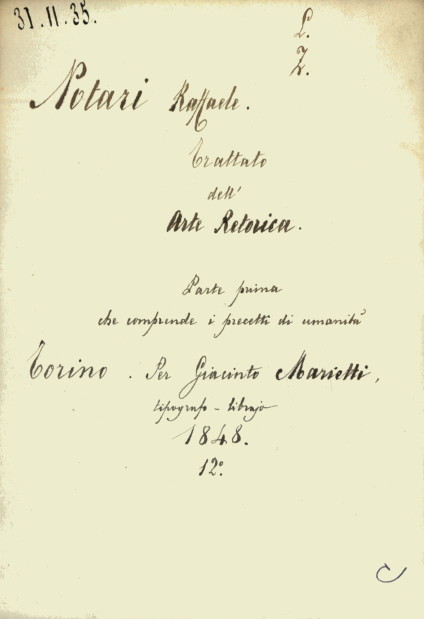 31.11.35.
L.
Z.
Notari Raffaele.
Trattato
dell'
Arte Retorica.
Parte prima
che comprende i precetti di umanità
Torino. Per Giacinto Marietti,
tipografo-librajo
1848.
12°.